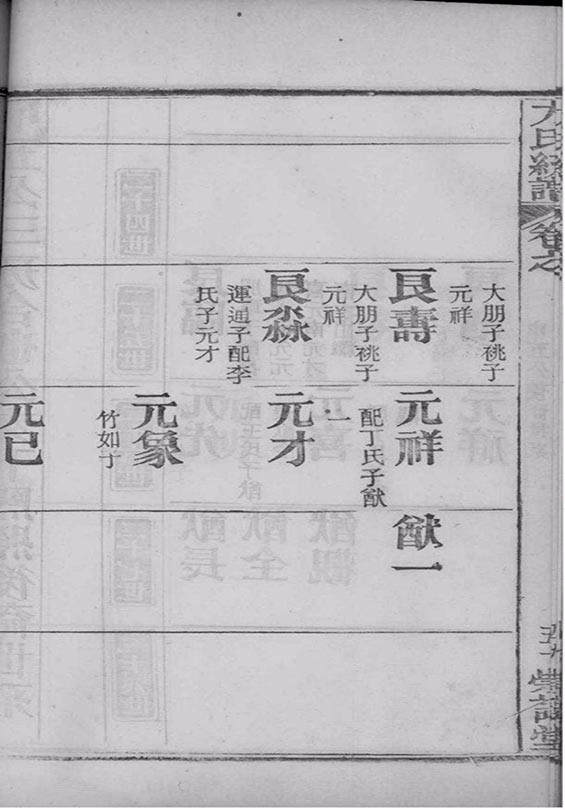 大朋子祧子
元祥
良壽
大朋子祧子
元祥
良淼
運通子配李
氏子元才
元祥
配丁氏子猷
一
元才
元象
竹如子
元已
猷一